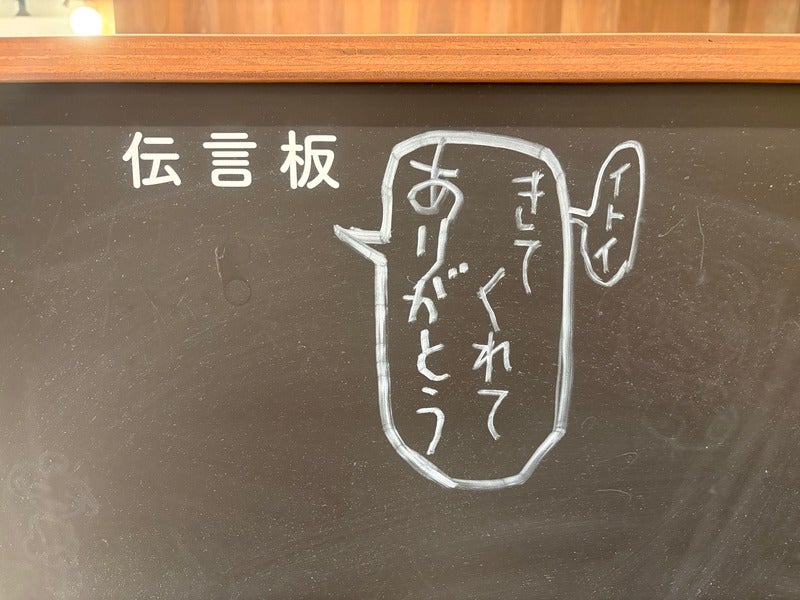 伝言板
きて
くれて
ありがとう
イトイ